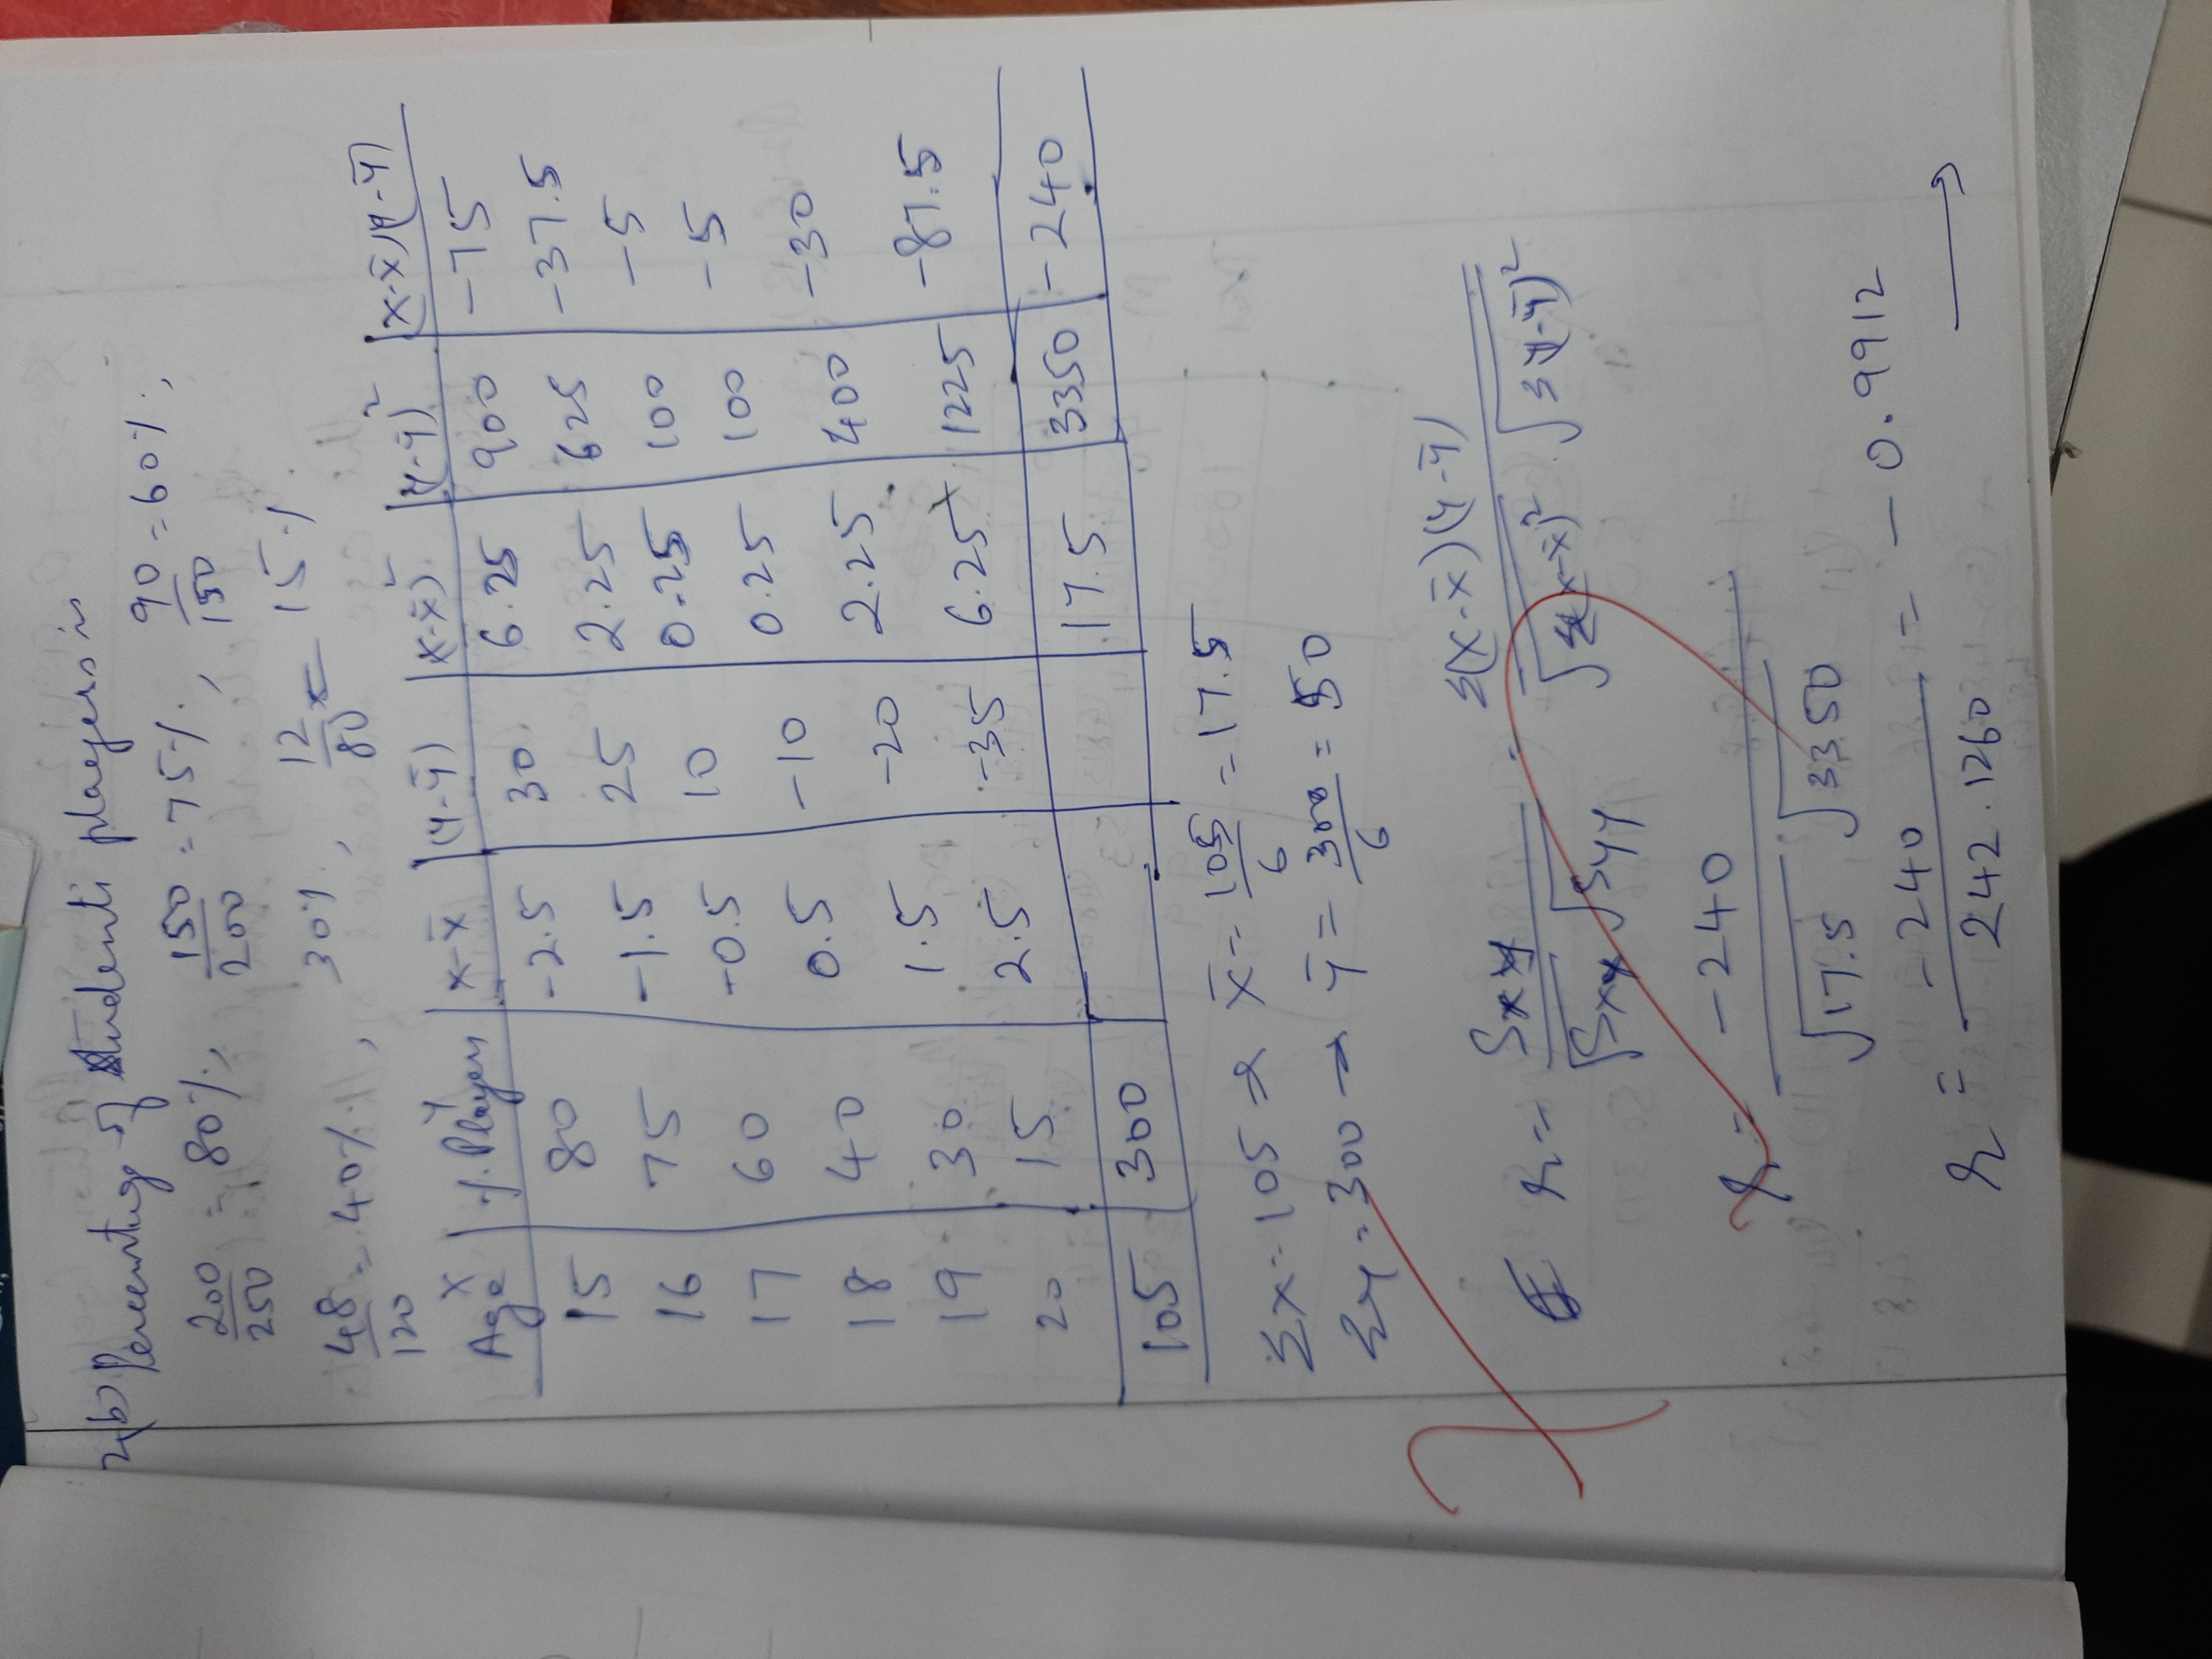 2,b) Percentage of Students players is
200/250 = 80%, 150/200 = 75%, 90/150 = 60%,
48/120 = 40%, 30%, 12/80 = 15%.
Age x | % Players y | x-x̄ | (y-ȳ) | (x-x̄)² | (y-ȳ)² | (x-x̄)(y-ȳ)
15 | 80 | -2.5 | 30 | 6.25 | 900 | -75
16 | 75 | -1.5 | 25 | 2.25 | 625 | -37.5
17 | 60 | -0.5 | 10 | 0.25 | 100 | -5
18 | 40 | 0.5 | -10 | 0.25 | 100 | -5
19 | 30 | 1.5 | -20 | 2.25 | 400 | -30
20 | 15 | 2.5 | -35 | 6.25 | 1225 | -87.5
105 | 300 | | | 17.5 | 3350 | -240
Σx = 105 ⇒ x̄ = 105/6 = 17.5
Σy = 300 → ȳ = 300/6 = 50
r = Sxy/√Sxx √Syy = Σ(x-x̄)(y-ȳ)/√Σ(x-x̄)² · √Σ(y-ȳ)²
r = -240/√17.5 √3350
r = -240/242.1260 = -0.9912 →